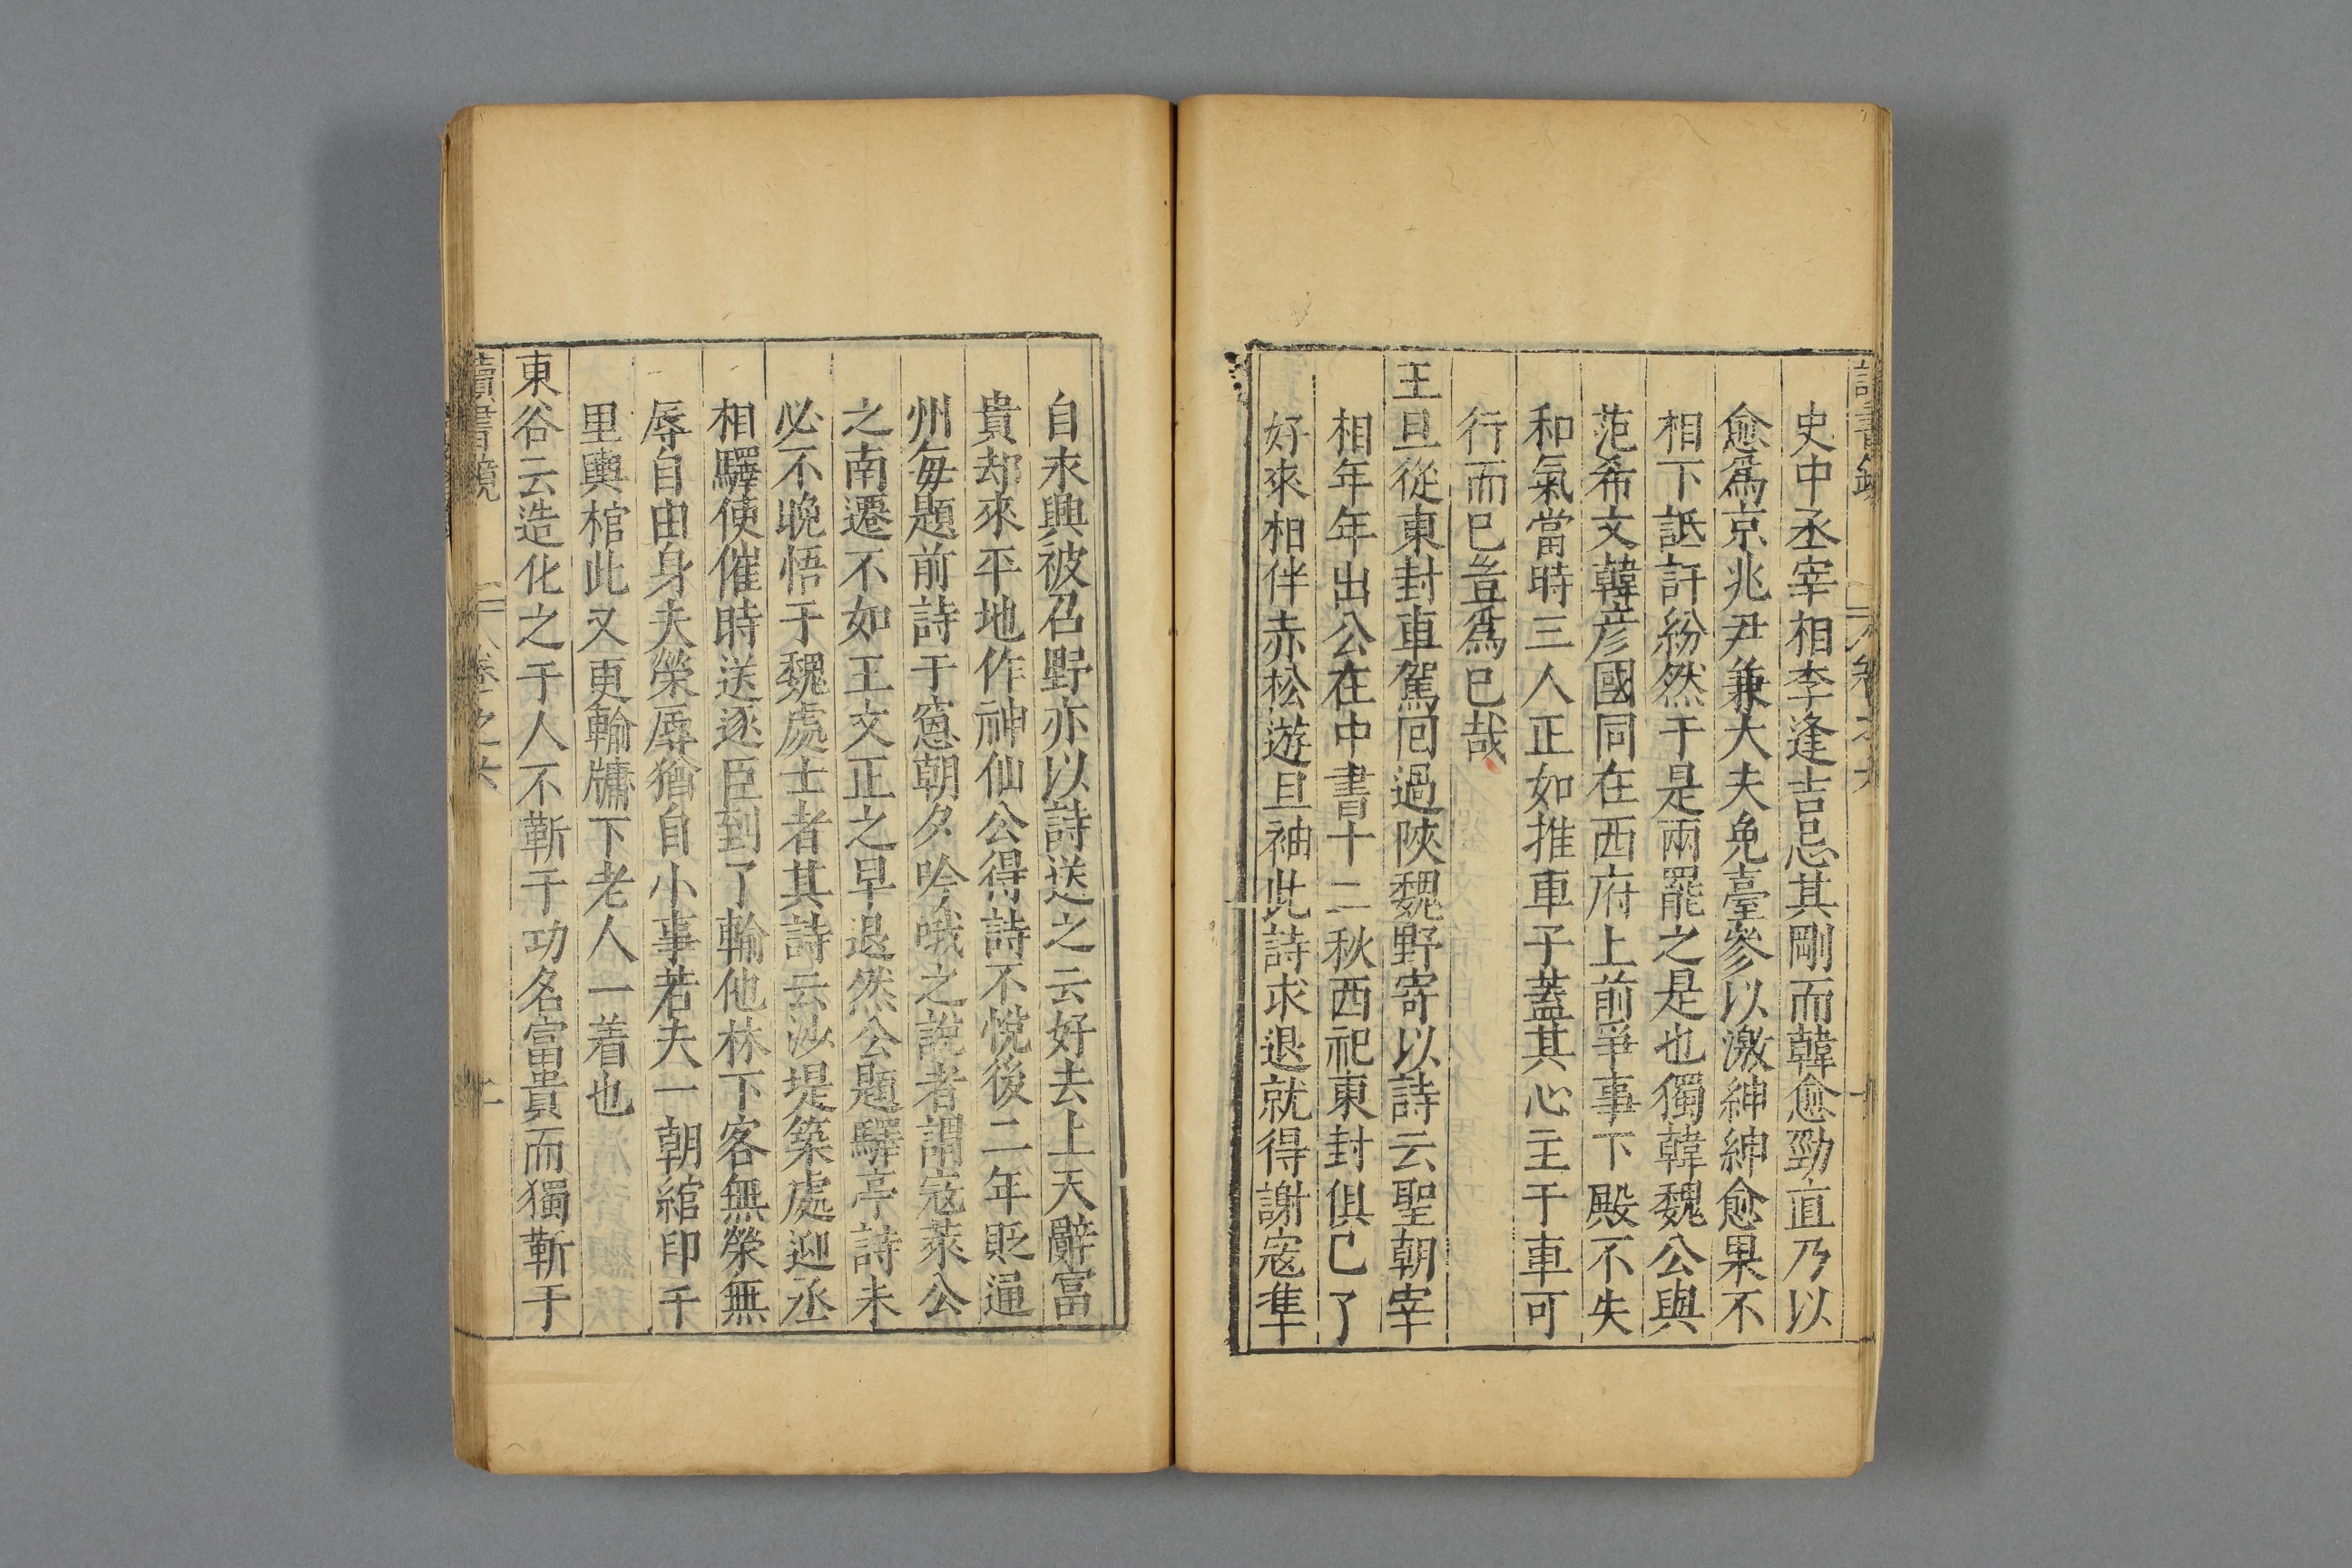 史中丞宰相李逢吉忌其剛而韓愈勁直乃以
愈爲京兆尹兼大夫免臺參以激紳紳愈果不
相下詆訐紛然于是兩罷之是也獨韓魏公與
范希文韓彥國同在西府上前爭事下殿不失
和氣當時三人正如推車子蓋其心主于車可
行而巳豈爲巳哉
王旦從東封車駕回過陝魏野寄以詩云聖朝宰
相年年出公在中書十二秋西祀東封俱巳了
好來相伴赤松遊旦袖此詩求退就得謝寇準
自永興被召野亦以詩送之云好去上天辭富
貴却來平地作神仙公得詩不悅後二年貶通
州每題前詩于窻朝夕吟哦之說者謂寇萊公
之南遷不如王文正之早退然公題驛亭詩未
必不晚悟于魏處士者其詩云沙堤築處迎丞
相驛使催時送逐臣到了輸他林下客無榮無
辱自由身夫榮辱猶自小事若夫一朝綰印千
里輿棺此又更輸牖下老人一着也
東谷云造化之于人不靳于功名富貴而獨靳于
讀書鏡 卷之六